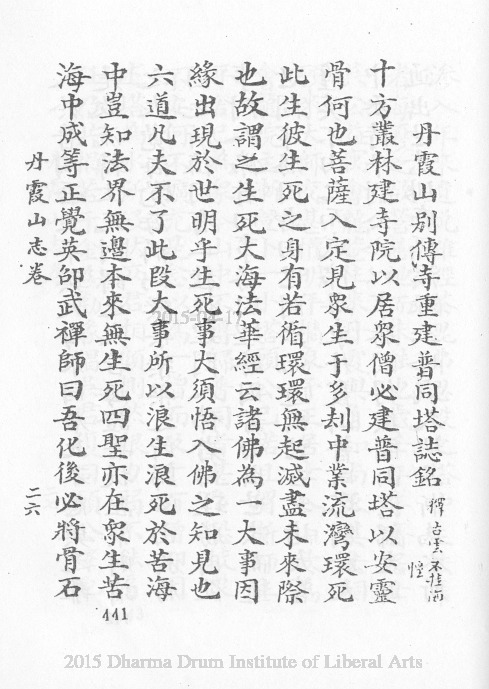 丹霞山別傳寺重建普同塔誌銘 釋古雲
十方叢林建寺院以居眾僧必建普同塔以安靈
骨何也菩薩入定見眾生于多刦中業流灣環死
此生彼生死之身有若循環環無起滅盡未來際
也故謂之生死大海法華經云諸佛為一大事因
緣出現於世明乎生死事大須悟入佛之知見也
六道凡夫不了此段大事所以浪生浪死於苦海
中豈知法界無邊本來無生死四聖亦在眾生苦
海中成等正覺英卲武禪師曰吾化後必將骨石
丹霞山志卷
二六
441
2015-04-17
2015 Dharma Drum Institute of Liberal Arts